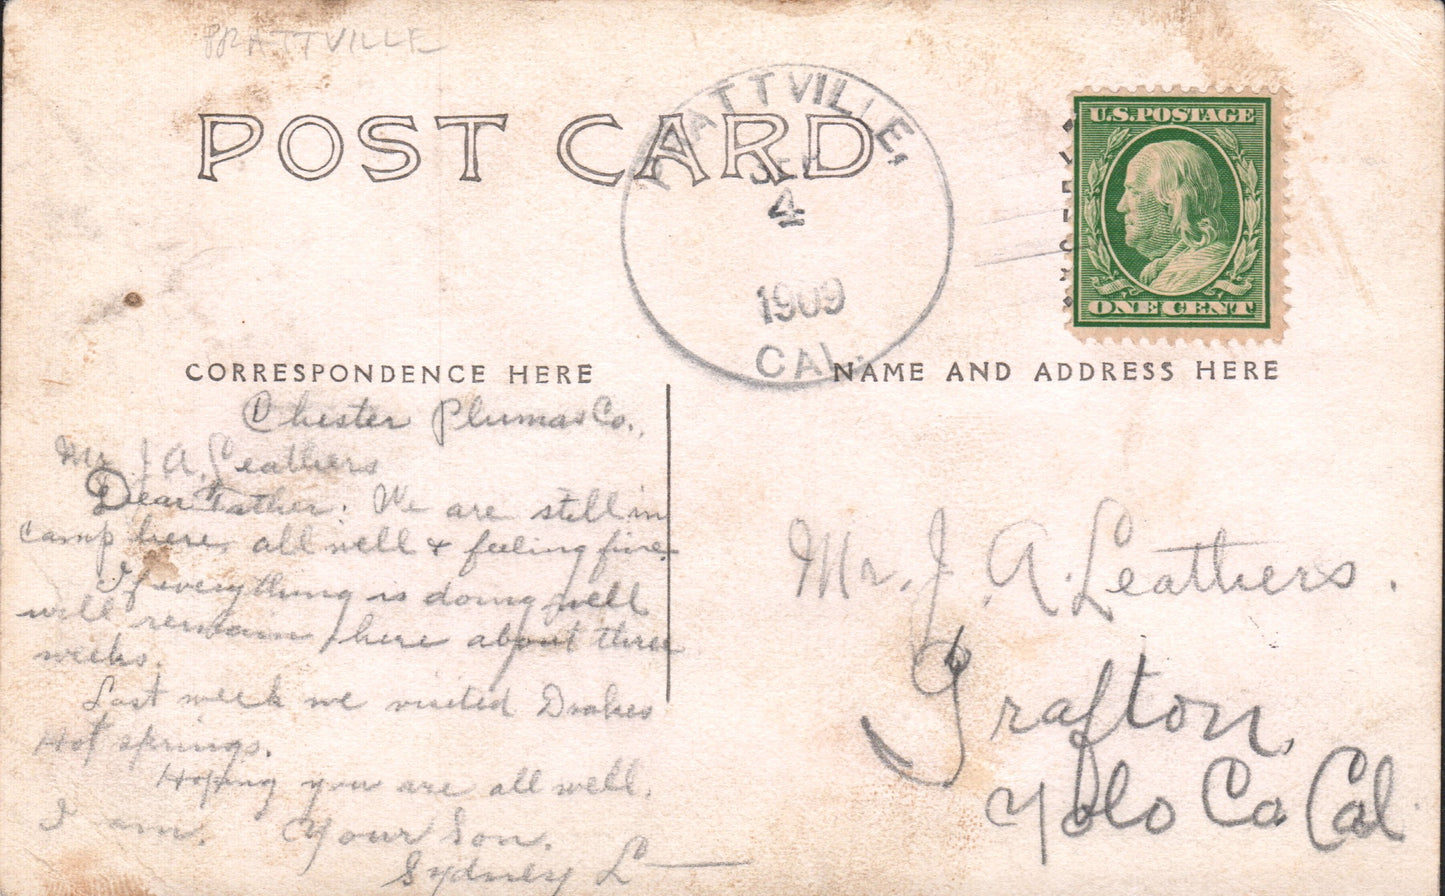 PRATTVILLE
POST CARD
PRATTVILLE,
SEP
4
1909
CAL.
U.S. POSTAGE
ONE CENT
CORRESPONDENCE HERE
NAME AND ADDRESS HERE
Chester Plumas Co.,
Mr J A. Leathers
Dear Father. We are still in
camp here, all well & feeling fine.
If everything is doing well
will remain here about three
weeks.
Last week we visited Drakes
Hot springs.
Hoping you are all well.
I am. Your Son.
Sydney L
Mr. J. A. Leathers.
Grafton,
Yolo Co Cal.